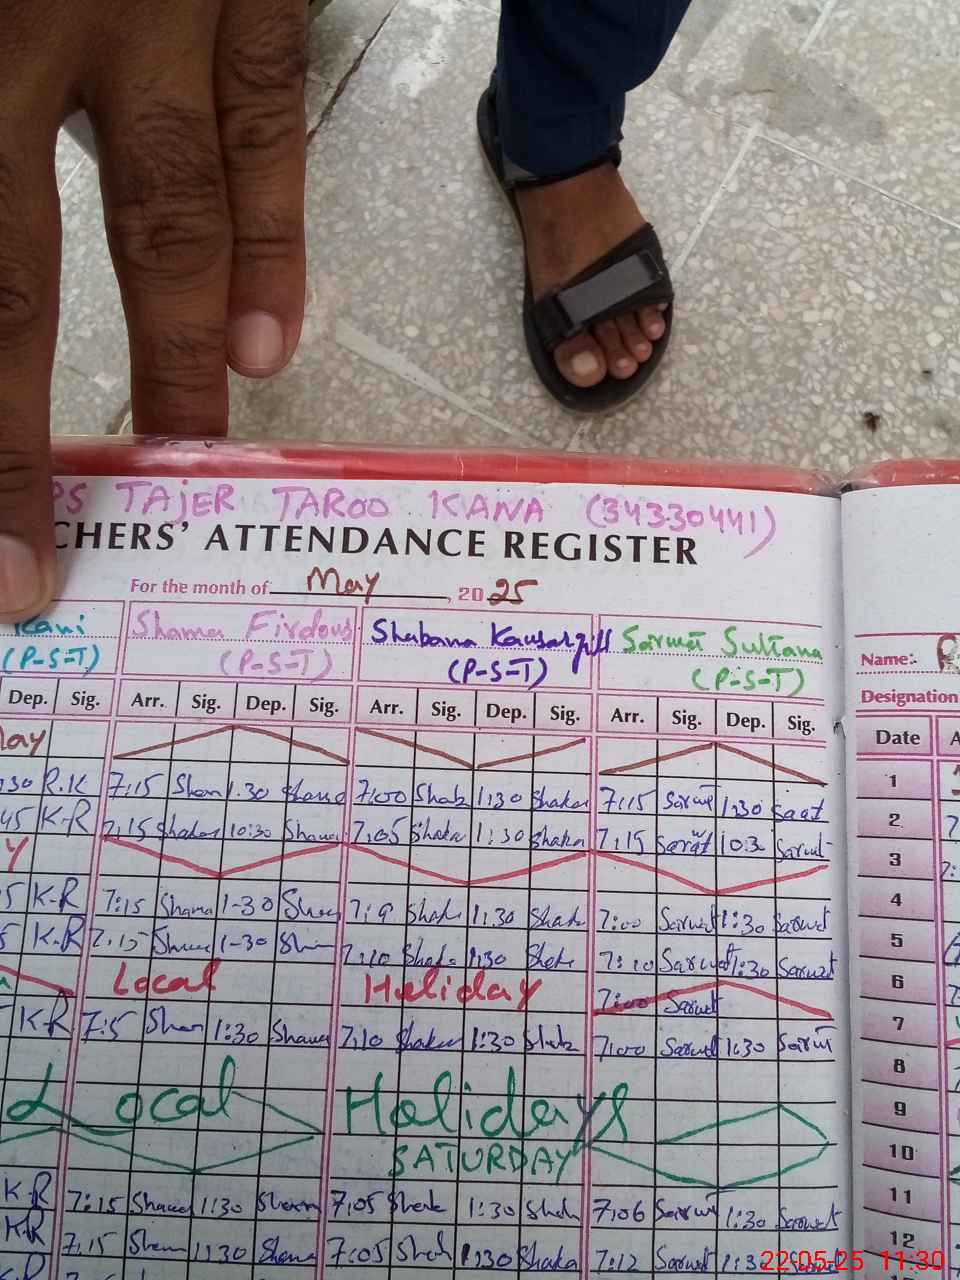 PS TAJER TAROO KANA (34330441)
CHERS' ATTENDANCE REGISTER
For the month of May, 2025
Rani Shama Firdous Shabana Kausar gill Sarwat Sultana
(P-S-T) (P-S-T) (P-S-T) (P-S-T)
Name:-
Designation
Dep. Sig. Arr. Sig. Dep. Sig. Arr. Sig. Dep. Sig. Arr. Sig. Dep. Sig.
Date A
May
1
30 R.K 7:15 Sham 1.30 Shama 7:00 Shab 1:30 Shaka 7:15 Sarwat 1:30
2
45 K-R 7:15 10:30 Shama 7:05 Shaka 1:30 Shaka 7:15 Sarwat 10:3
3
Y
4
5 K-R 7:15 Shama 1-30 7:9 Shak 1:30 Shak 7:00 Sarwat 1:30 Sarwat
5
5 K-R 7.15 1-30 7:10 Shaka 1:30 7:10 Sarwat 1:30 Sarwat
6
Local Holiday 7:00 Sarwat
7
K-R 7:5 Sham 1:30 Shama 7:10 1:30 Shab 7:00 Sarwat 1:30 Sarwat
8
9
Local Holidays
10
SATURDAY
11
K-R 7:15 Shama 1:30 Sham 7:05 Shak 1:30 Shah 7:06 Sarwat 1:30 Sarwat
12
K-R 7:15 Sham 1:30 Shama 7:05 Shah 1:30 Shaka 7:12 Sarwat 1:3 Sarwat
22-05-25 11:30